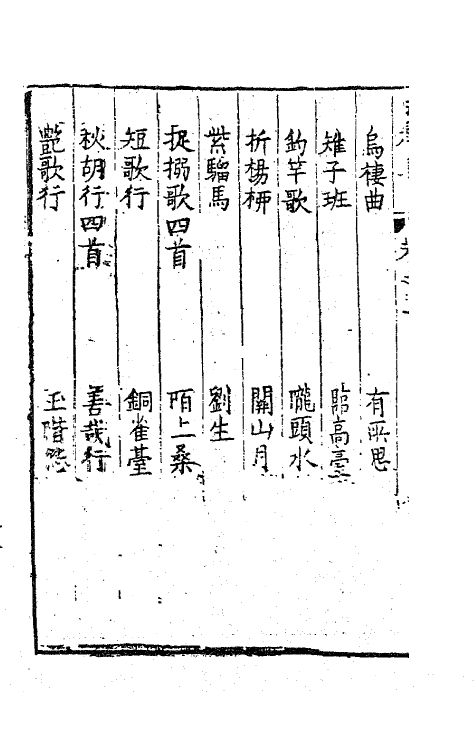 烏棲曲　有所思
雉子班　臨高臺
釣竿歌　隴頭水
折楊柳　關山月
紫騮馬　劉生
捉搦歌四首　陌上桑
短歌行　銅雀臺
秋胡行四首　善哉行
豔歌行　玉階怨